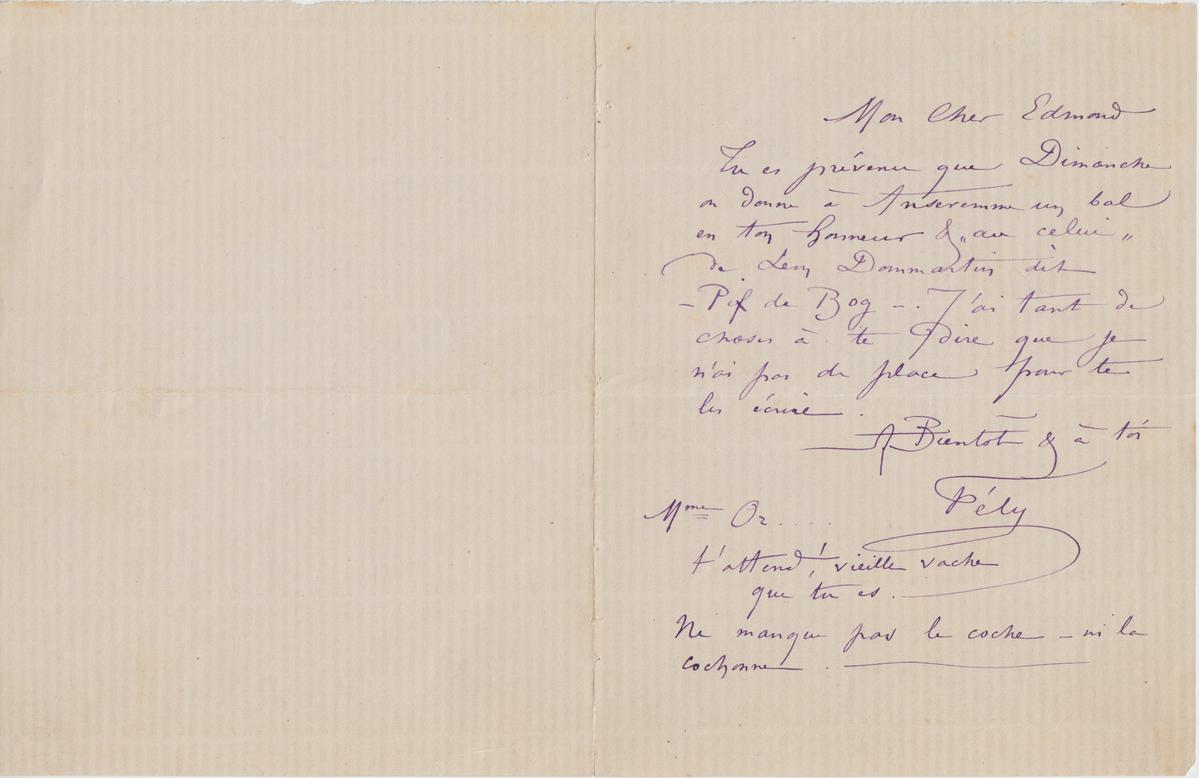 Mon Cher Edmond
Tu es prévenu que Dimanche
on donne à Anseremme un bal
en ton honneur & „au celui „
de Léon Dommartin dit
– Pif de Bog –. J'ai tant de
choses à te dire que je
n'ai pas de place pour te
les écrire.
A Bientôt & à toi
Fély
Mme Oz....
t'attend, ! vieille vache
que tu es.
Ne manque pas le coche – ni la
cochonne.